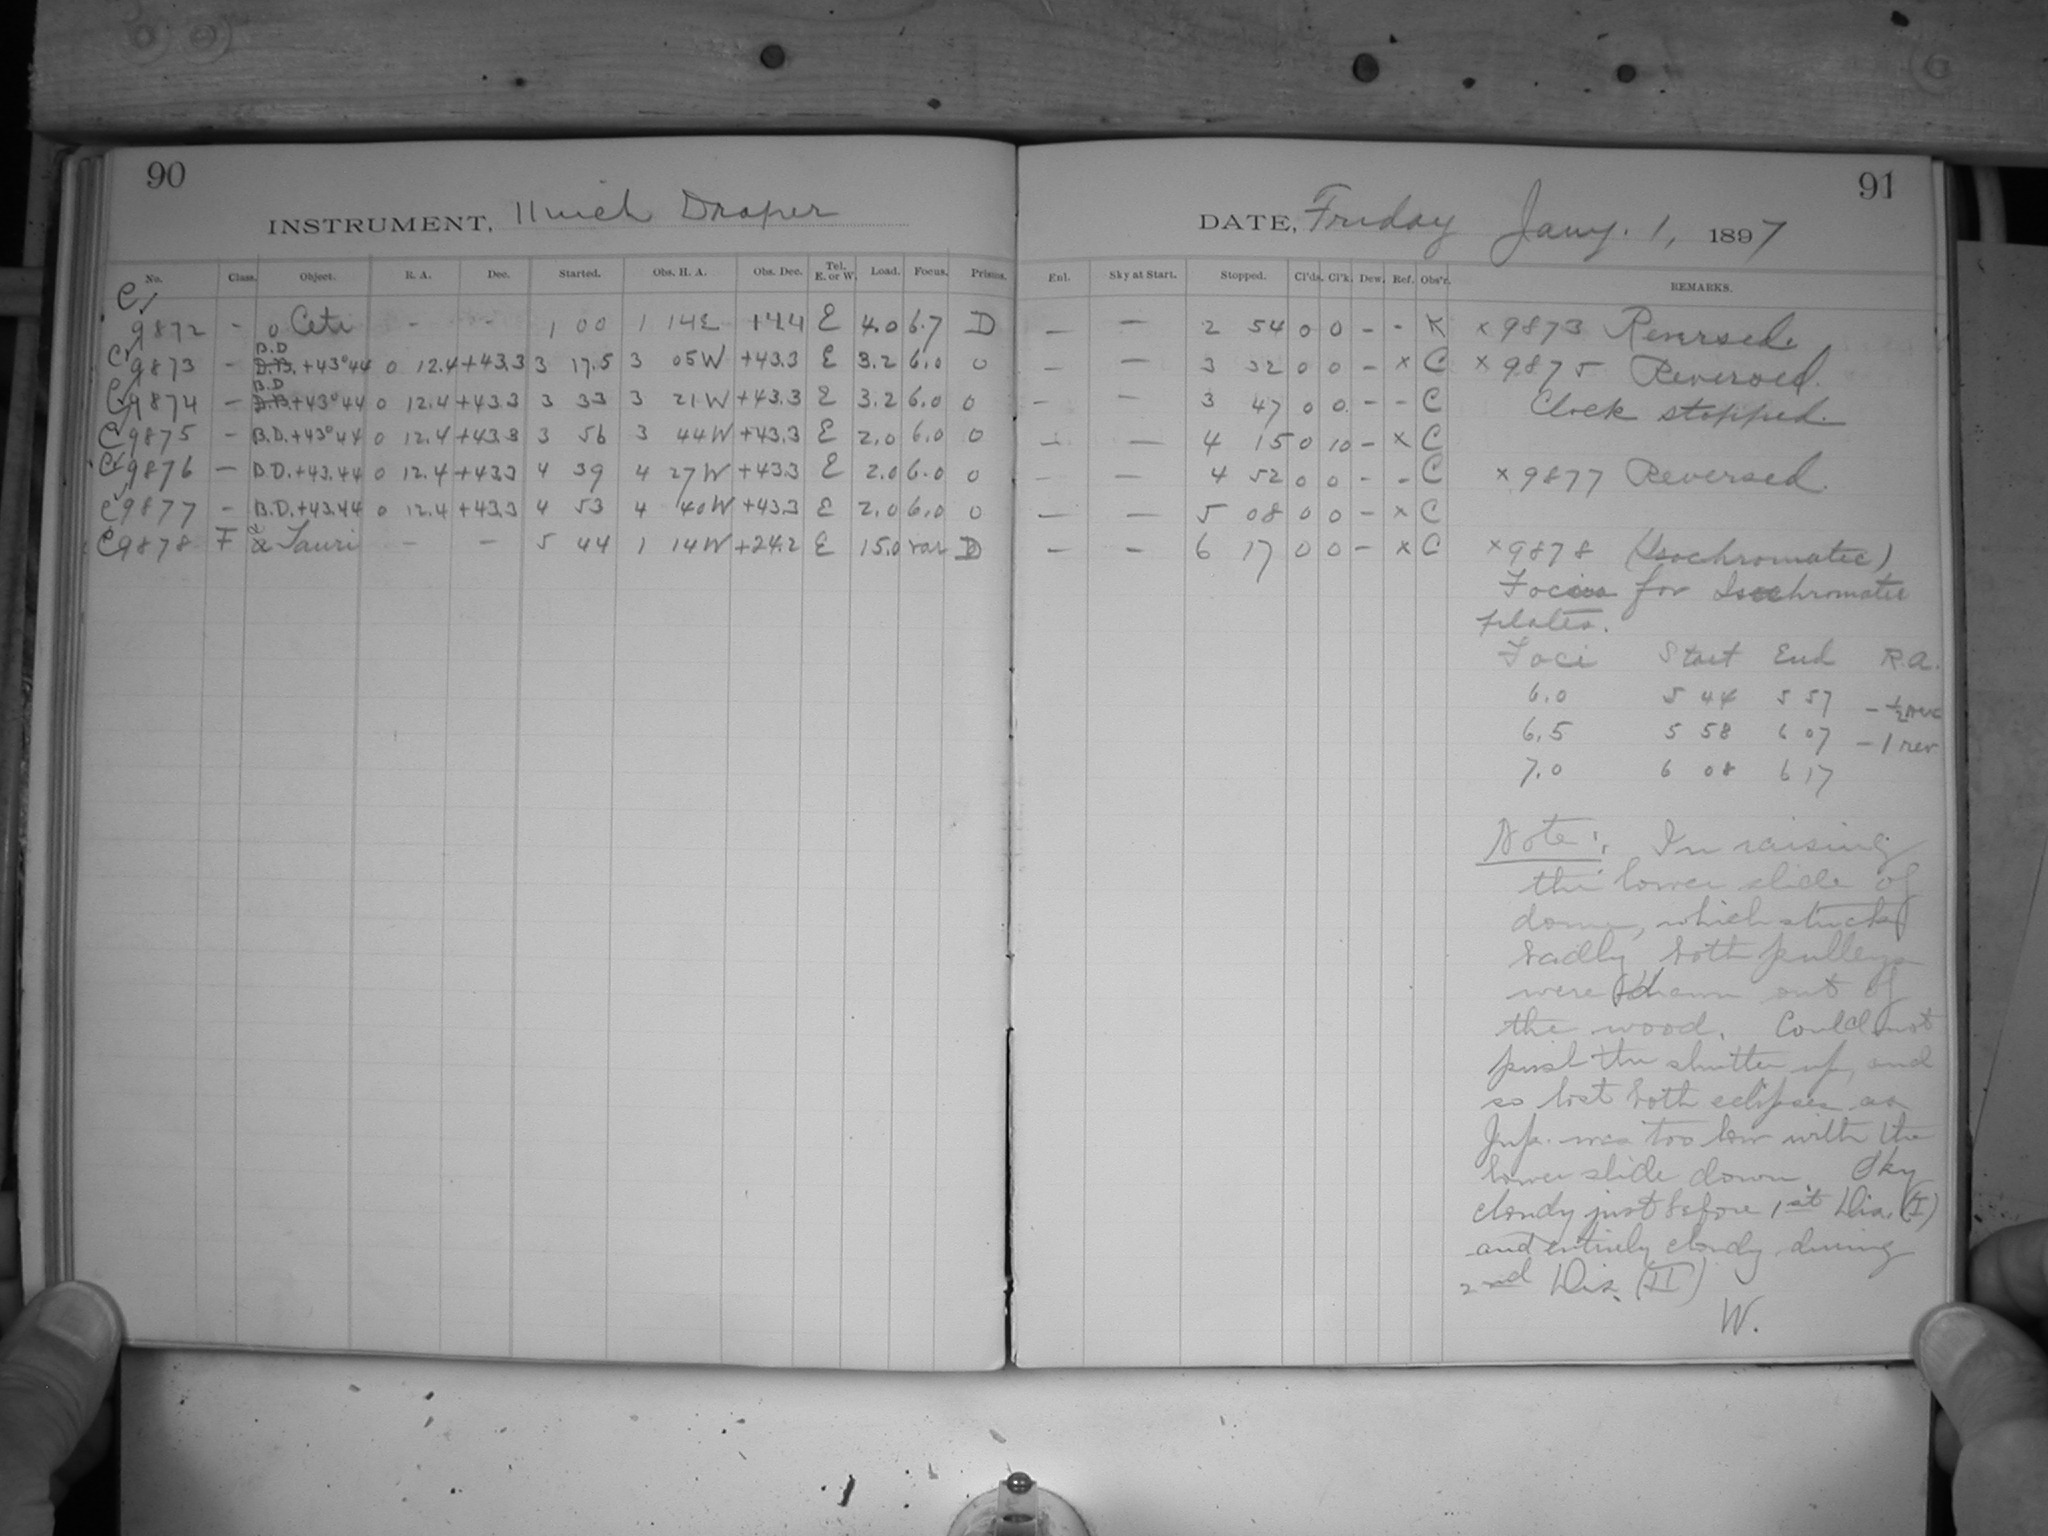 90
INSTRUMENT, 11 inch Draper
No. Class. Object. R. A. Dec. Started. Obs. H. A. Obs. Dec. Tel. E. or W. Load. Focus. Prisms.
C 9872 - o Ceti - - 1 00 1 14E +4.4 E 4.0 6.7 D
C 9873 - B.D. +43°44 0 12.4 +43.3 3 17.5 3 05W +43.3 E 3.2 6.0 0
C 9874 - B.D. +43°44 0 12.4 +43.3 3 33 3 21W +43.3 E 3.2 6.0 0
C 9875 - B.D. +43°44 0 12.4 +43.3 3 56 3 44W +43.3 E 2.0 6.0 0
C 9876 - B.D. +43.44 0 12.4 +43.3 4 39 4 27W +43.3 E 2.0 6.0 0
C 9877 - B.D. +43.44 0 12.4 +43.3 4 53 4 40W +43.3 E 2.0 6.0 0
C 9878 F Tauri - - 5 44 1 14W +24.2 E 15.0 var D
91
DATE, Friday Jany. 1, 1897
Enl. Sky at Start. Stopped. Cl'ds. Cl'k. Dew. Ref. Obs'r. REMARKS.
- - 2 54 0 0 - - K x 9873 Reversed.
- - 3 32 0 0 - x C x 9875 Reversed.
- - 3 47 0 0 - - C Clock stopped.
- - 4 15 0 10 - x C
- - 4 52 0 0 - - C x 9877 Reversed.
- - 5 08 0 0 - x C
- - 6 17 0 0 - x C x 9878 (Isochromatic)
Focus for Isochromatic
plates.
Foci Start End R.A.
6.0 5 44 5 57 - ½ rev
6.5 5 58 6 07 - 1 rev
7.0 6 08 6 17
Note: In raising
the lower slide of
dome, which stuck
badly both pulleys
were drawn out of
the wood. Could not
push the shutter up, and
so lost both eclipses as
Jup. was too low with the
lower slide down Sky
cloudy just before 1st Dis. (I)
and entirely cloudy during
2nd Dis. (II)
W.